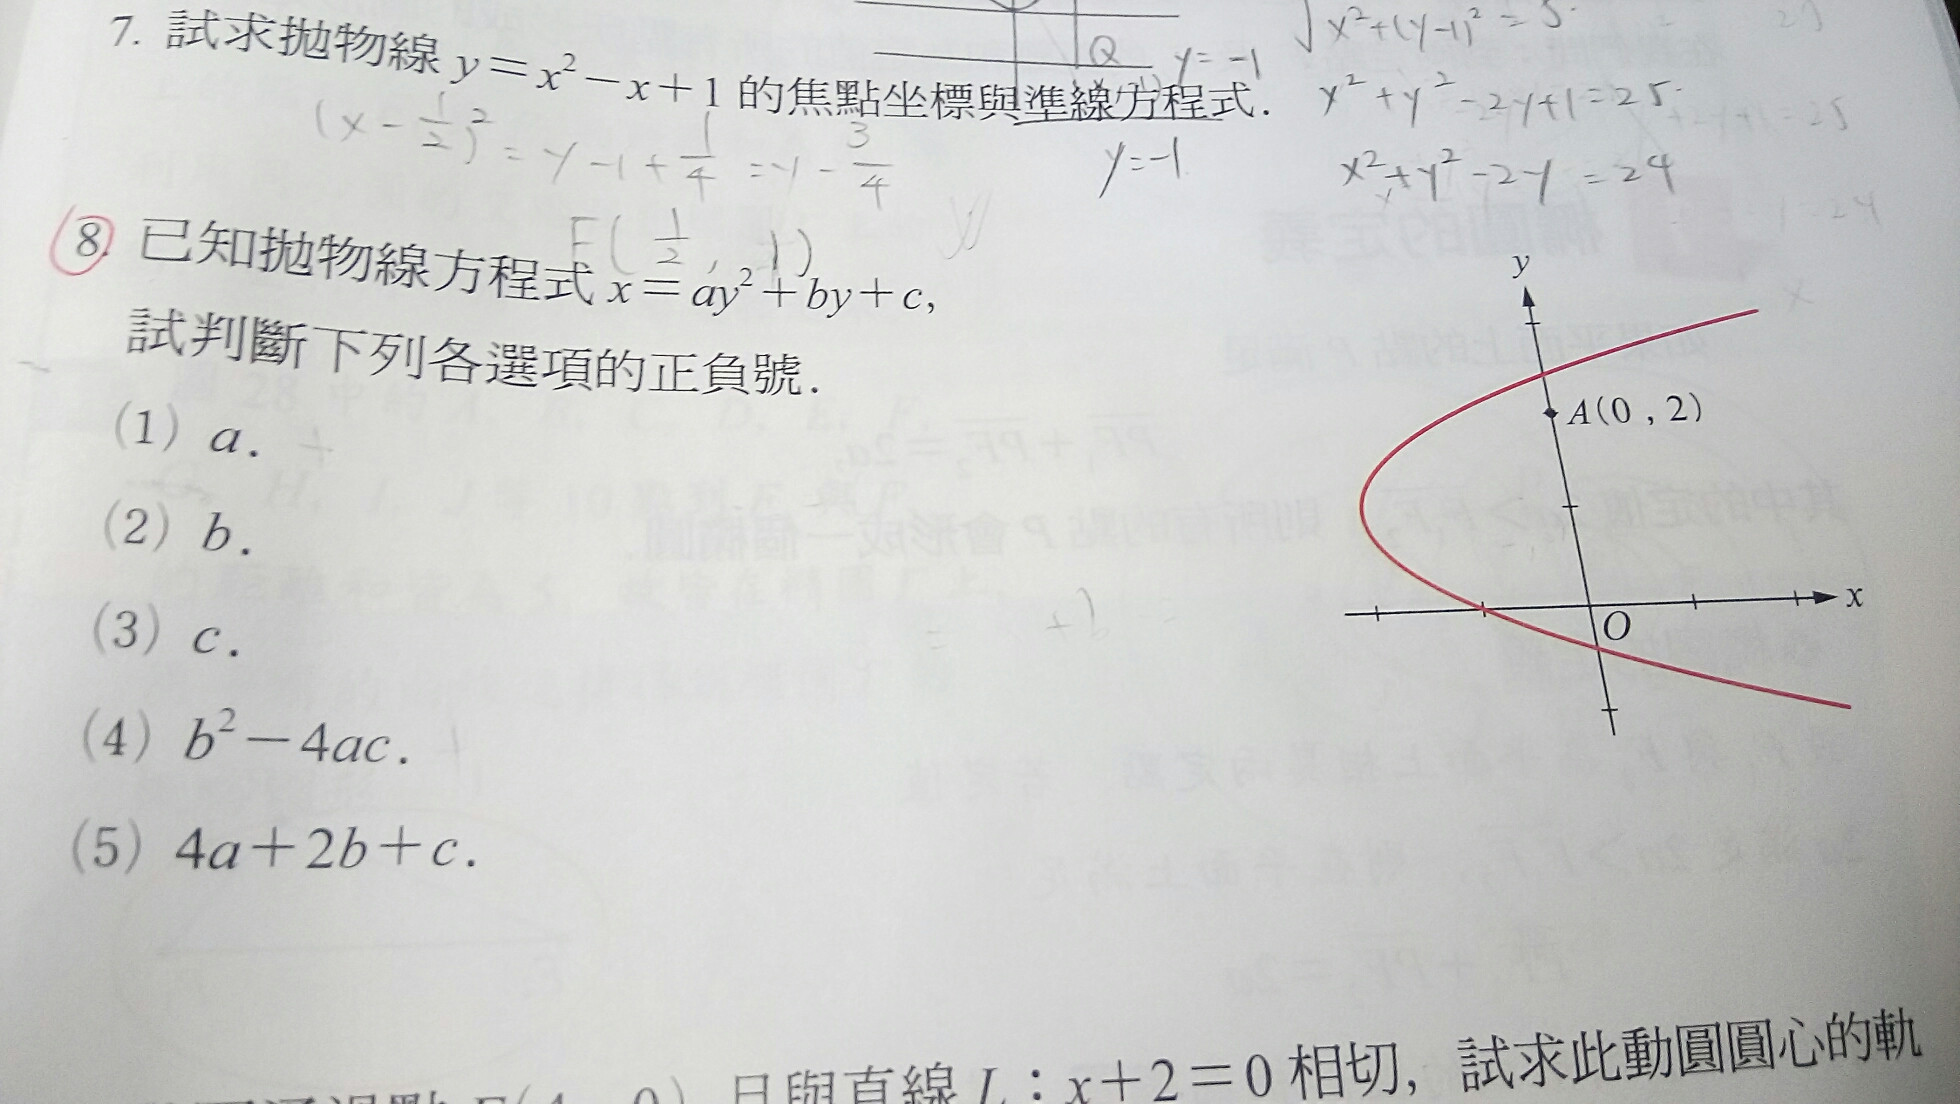 7. 試求拋物線 y＝x²－x＋1 的焦點坐標與準線方程式.
Q y=-1
√x²+(y-1)² = 5
x²+y²-2y+1=25
x²+y²-2y=24
(x-1/2)² = y-1+1/4 = y-3/4
y=-1
F(1/2, 1)
⑧. 已知拋物線方程式 x＝ay²＋by＋c,
試判斷下列各選項的正負號.
(1) a. +
(2) b.
(3) c.
(4) b²－4ac. +
(5) 4a＋2b＋c.
y
A(0 , 2)
x
O
且與直線 L：x＋2＝0 相切, 試求此動圓圓心的軌